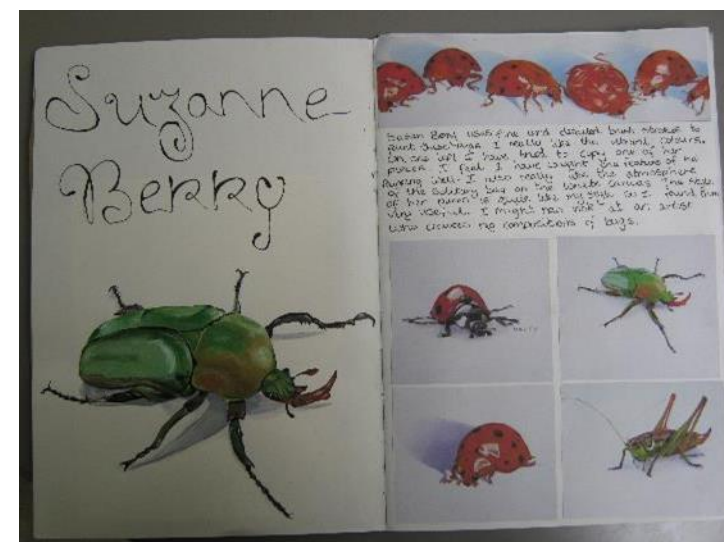 Suzanne
Berry
Susan Berry uses fine and detailed brush strokes to
paint these bugs. I really like the vibrant colours.
On the left I have tried to copy one of her
pieces. I feel I have caught the feature of the
Painting well. I also really like the atmosphere
of the solitary bug on the white canvas. The style
of her pieces is quite like my style so I found this
very useful. I might now look at an artist
who the compositions of bugs.